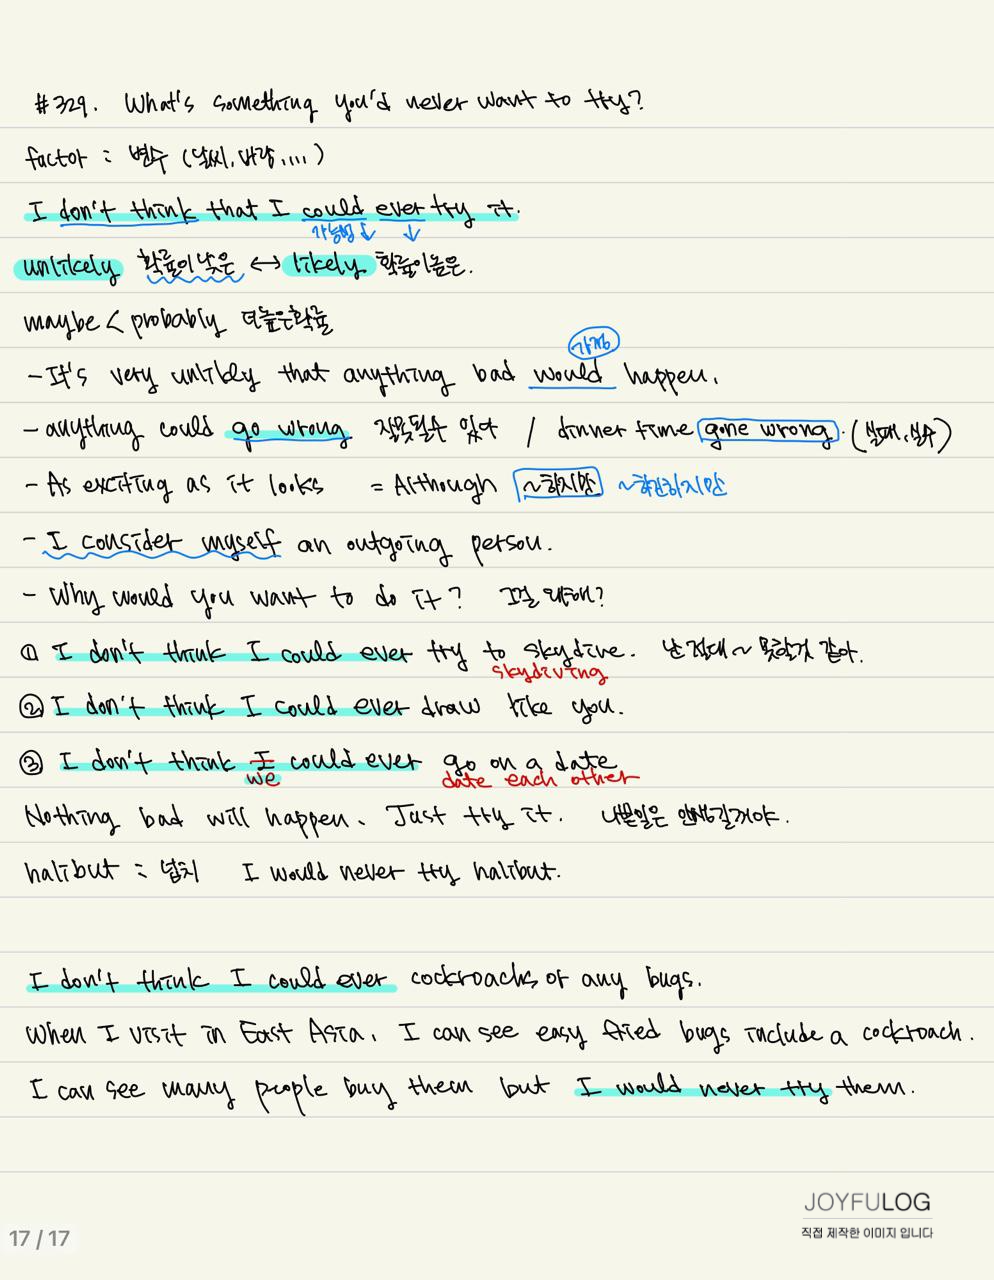 #329. What's something you'd never want to try?
factor : 변수 (날씨, 바람, ....)
I don't think that I could ever try it.
가능성↓ ↓
unlikely 확률이 낮은 ↔ likely 확률이 높은.
maybe < probably 더 높은 확률
가정
- It's very unlikely that anything bad would happen.
- anything could go wrong 잘못될수 있어 / dinner time gone wrong. (실패, 실수)
- As exciting as it looks = Although ~하지만 ~하긴하지만
- I consider myself an outgoing person.
- Why would you want to do it? 그걸 왜해?
① I don't think I could ever try to skydive. 난 절대~ 못할것 같아.
skydiving
② I don't think I could ever draw like you.
③ I don't think I could ever go on a date
we date each other
Nothing bad will happen. Just try it. 나쁜일은 안생길거야.
halibut : 넙치 I would never try halibut.
I don't think I could ever cockroachs or any bugs.
When I visit in East Asia, I can see easy fried bugs include a cockroach.
I can see many people buy them but I would never try them.
JOYFULOG
직접 제작한 이미지 입니다
17 / 17